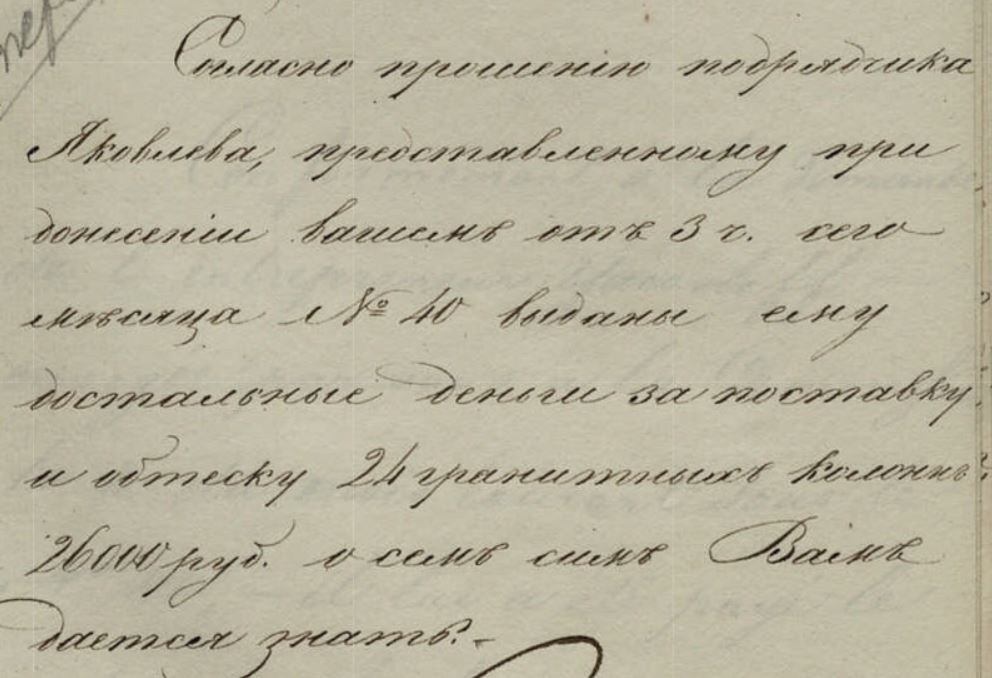 Согласно прошенію подрядчика
Яковлева, представленному при
донесеніи вашемъ отъ 3 ч. сего
мѣсяца № 40 выданы ему
достальные деньги за поставку
и обтеску 24 гранитныхъ колоннъ
26000 руб. о семъ симъ Вамъ
дается знать.-